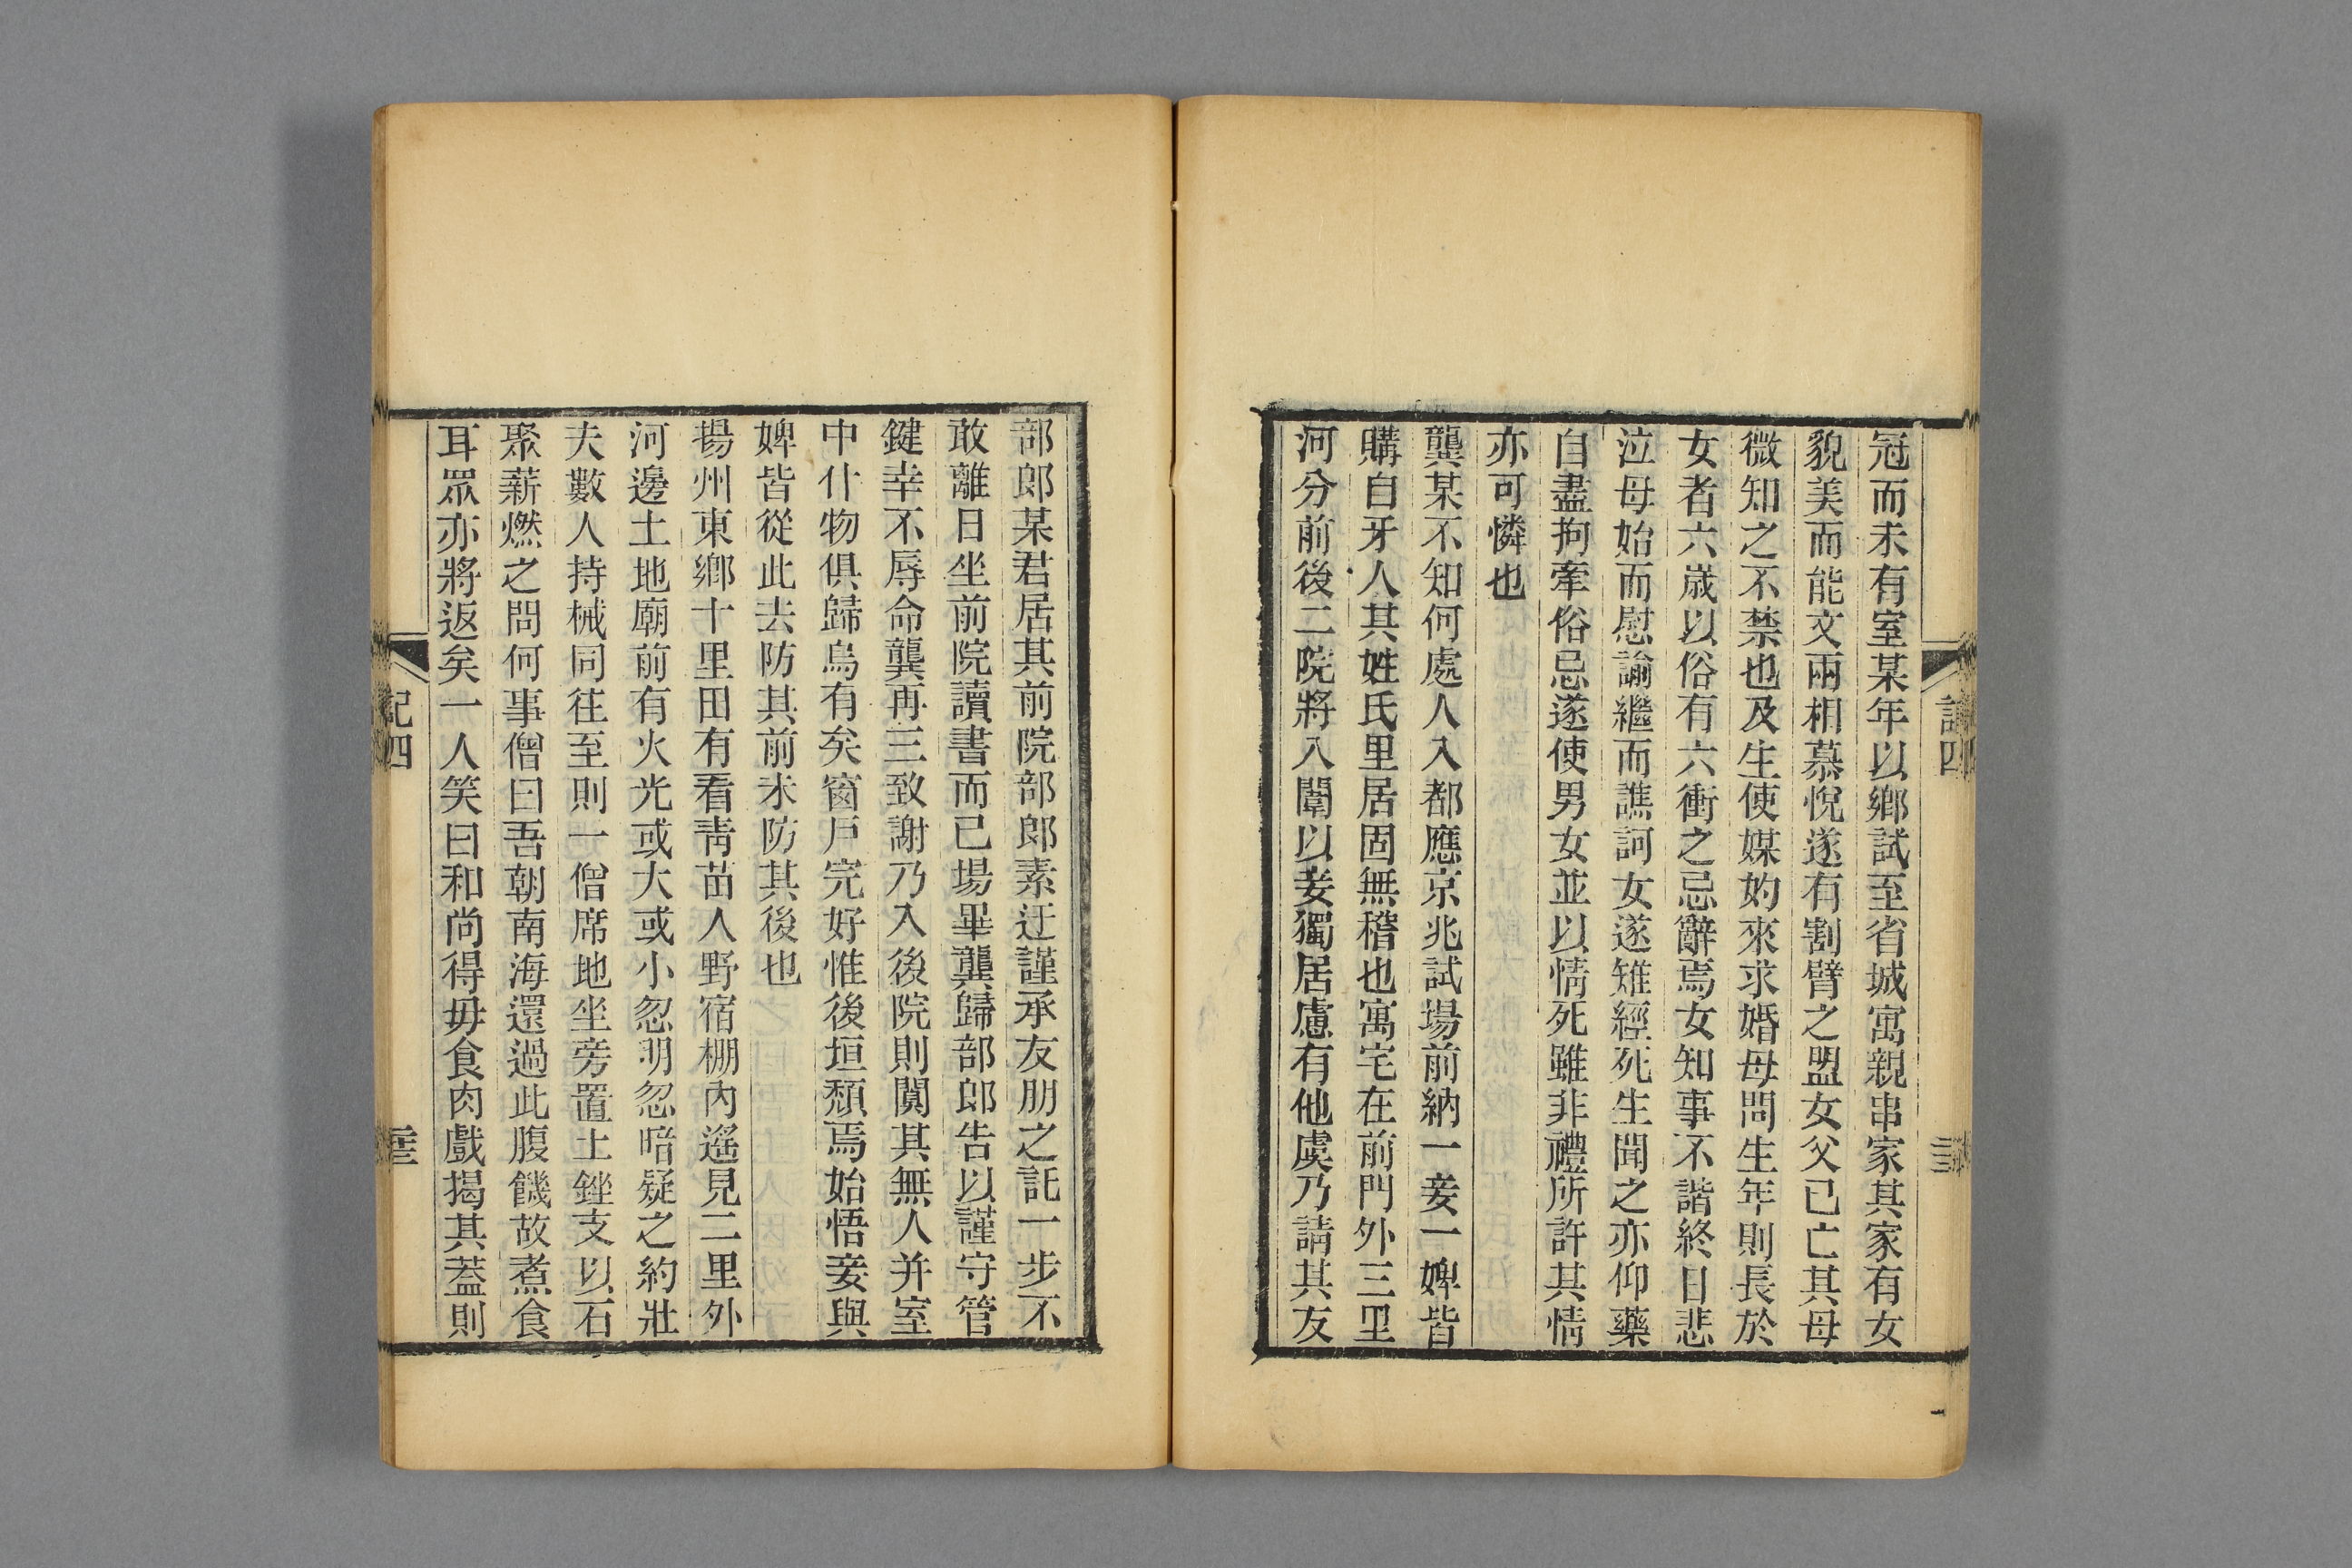 冠而未有室某年以鄉試至省城寓親串家其家有女
貌美而能文兩相慕悅遂有割臂之盟女父已亡其母
微知之不禁也及生使媒妁來求婚母問生年則長於
女者六歲以俗有六衝之忌辭焉女知事不諧終日悲
泣母始而慰諭繼而譙訶女遂雉經死生聞之亦仰藥
自盡拘牽俗忌遂使男女並以情死雖非禮所許其情
亦可憐也
龔某不知何處人入都應京兆試場前納一妾一婢皆
購自牙人其姓氏里居固無稽也寓宅在前門外三里
河分前後二院將入闈以妾獨居慮有他虞乃請其友
部郎某君居其前院部郎素迂謹承友朋之託一步不
敢離日坐前院讀書而已場畢龔歸部郎告以謹守管
鍵幸不辱命龔再三致謝乃入後院則闃其無人并室
中什物俱歸烏有矣窗戶完好惟後垣頹焉始悟妾與
婢皆從此去防其前未防其後也
揚州東鄉十里田有看青苗人野宿棚內遙見二里外
河邊土地廟前有火光或大或小忽明忽暗疑之約壯
夫數人持械同往至則一僧席地坐旁置土銼支以石
聚薪燃之問何事僧曰吾朝南海還過此腹饑故煮食
耳眾亦將返矣一人笑曰和尚得毋食肉戲揭其蓋則
記四